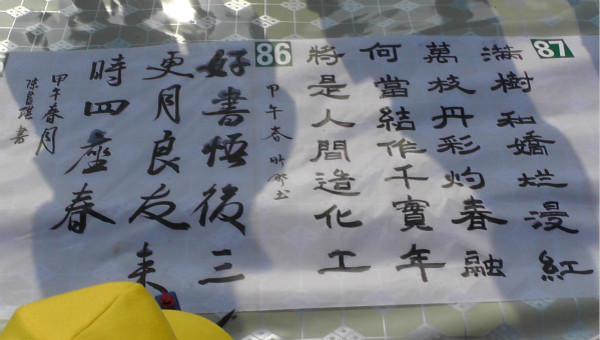 87
滿樹和嬌爛漫紅
萬枝丹彩灼春融
何當結作千寶年
將是人間造化工
甲午春
86
好書悟後三
更月良友来
時四座春
甲午春月
書